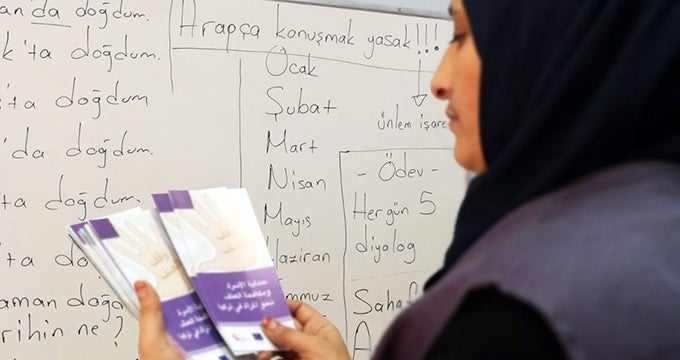 da doğdum.
k'ta doğdum.
'ta doğdum
'da doğdum.
ta doğdum.
'ta
aman
ne ?
Arapça konuşmak yasak!!!
Ocak
Şubat
Mart
Nisan
Mayıs
Haziran
mmuz
ünlem işare
- Ödev -
Hergün 5
diyalog
Sahaf
حماية الأسرة
ومكافحة العنف
ضد المرأة في تركيا